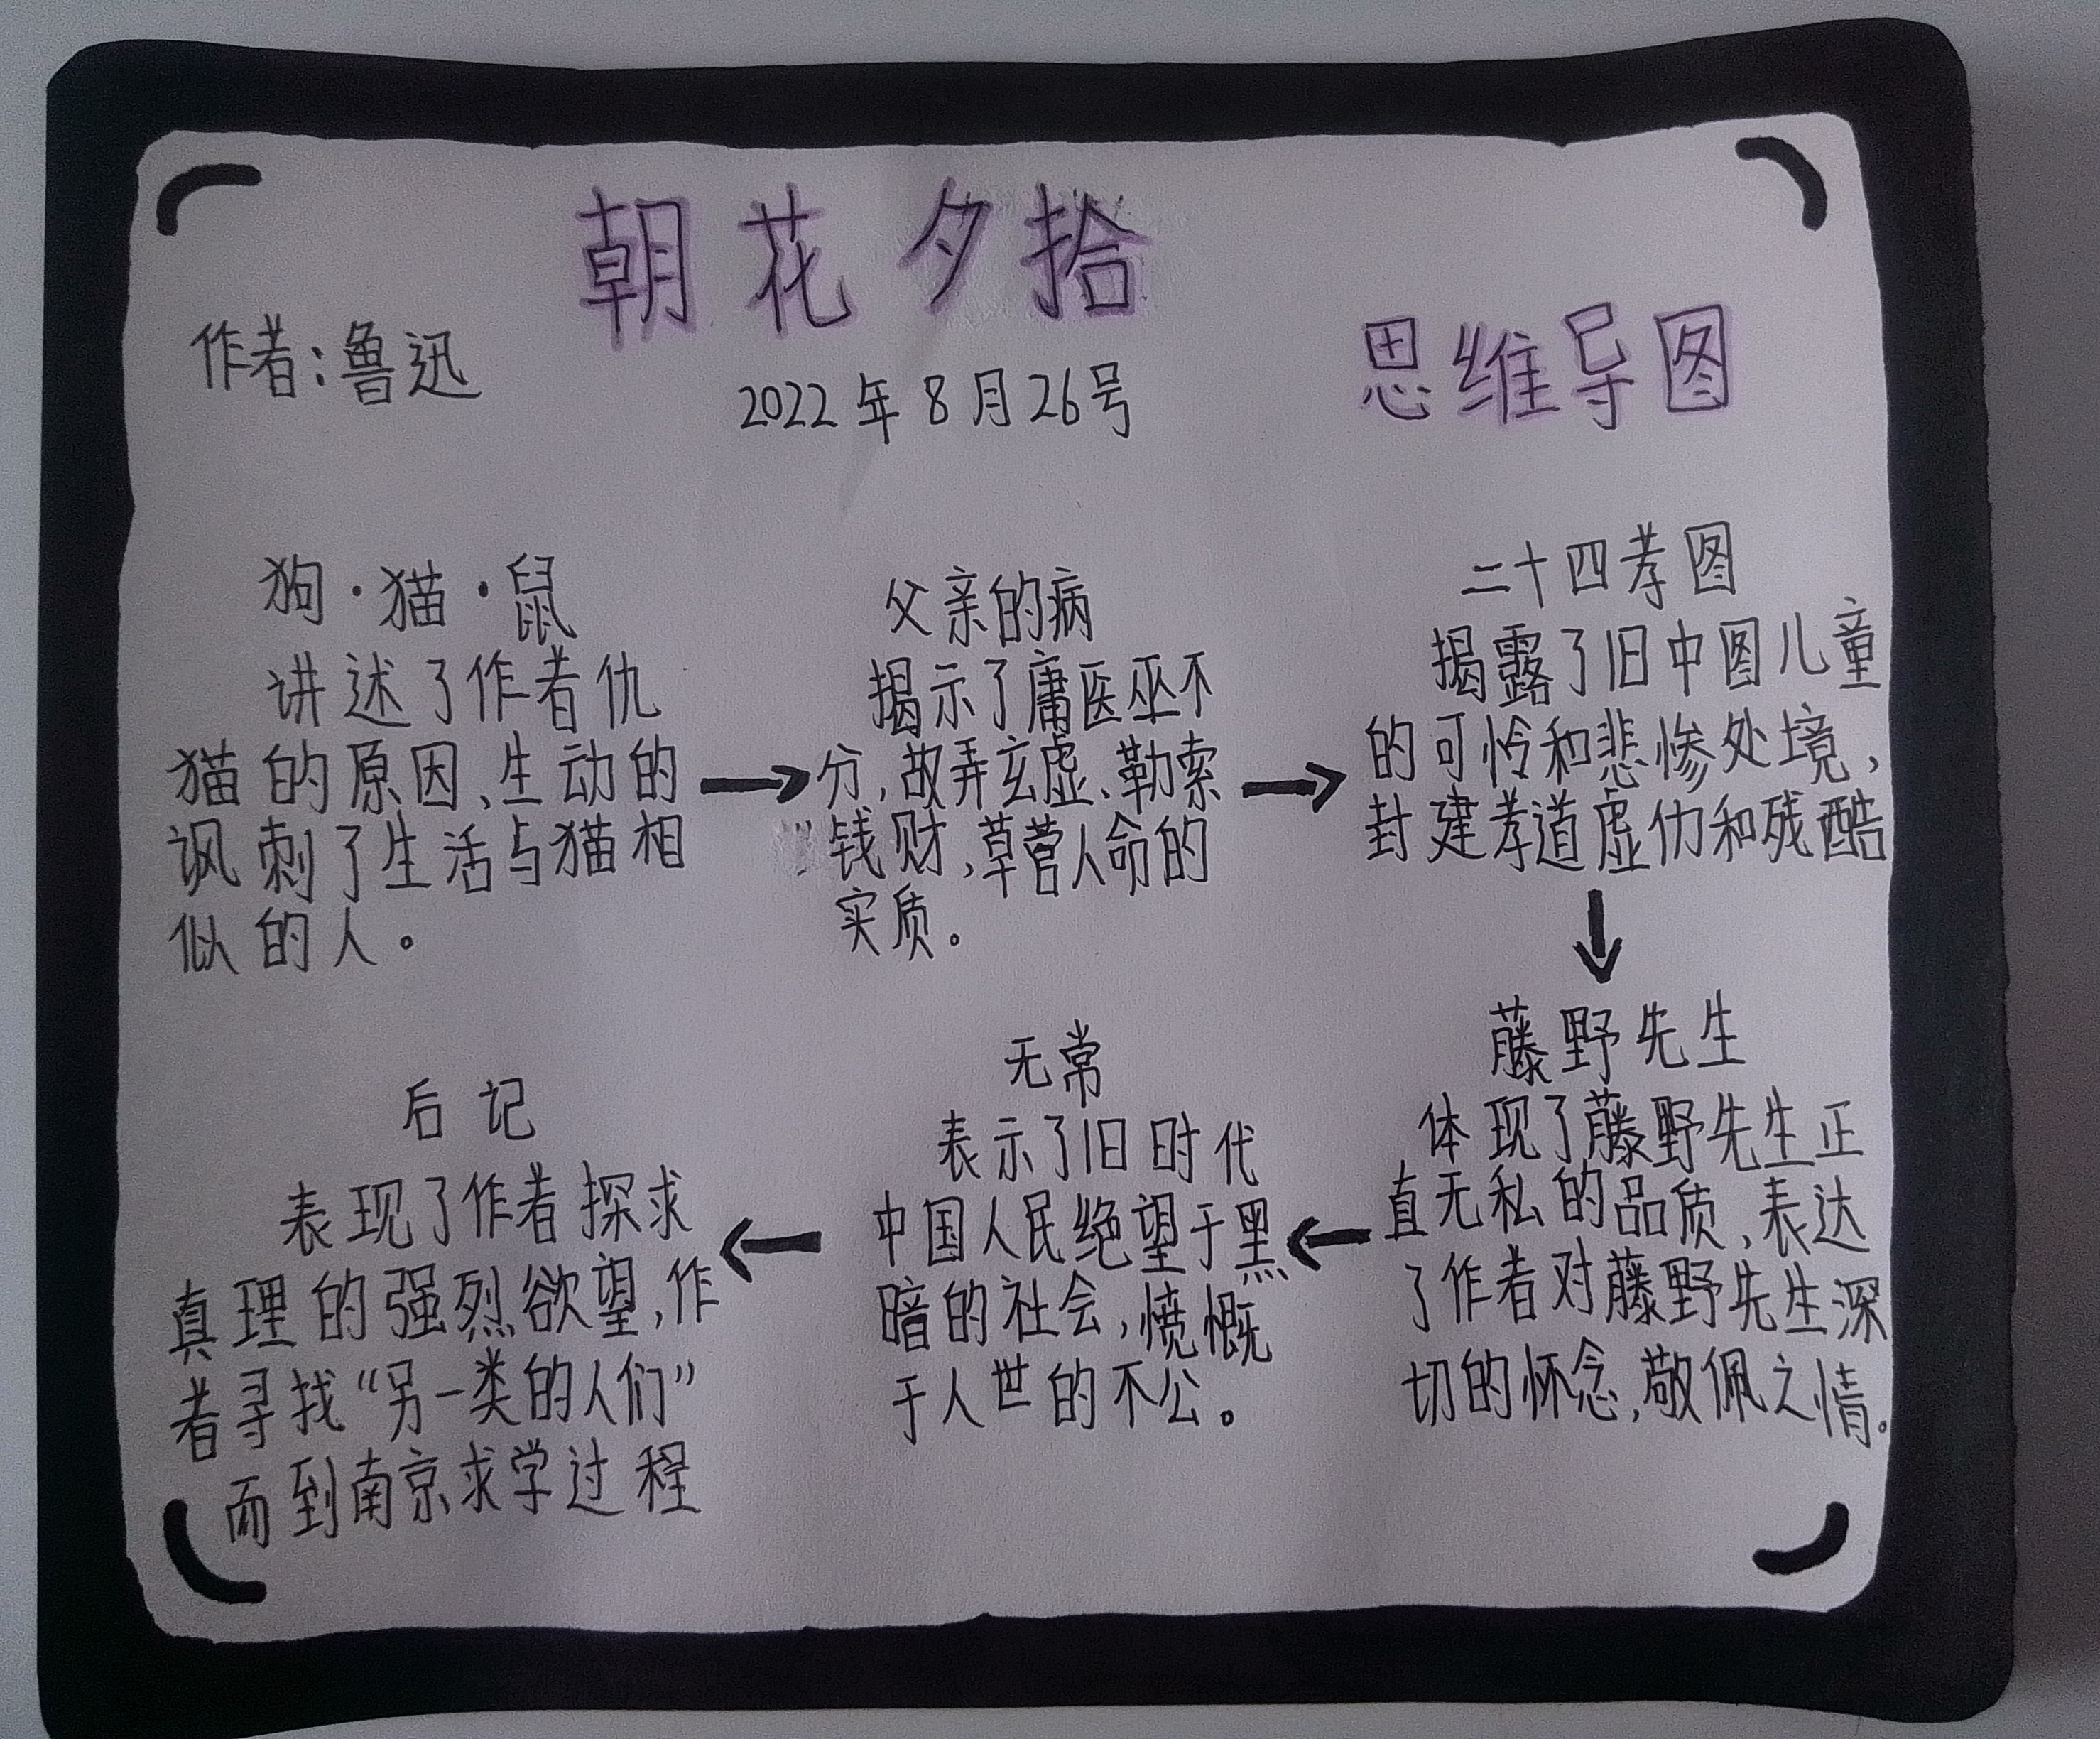 朝花夕拾
作者:鲁迅
思维导图
2022年8月26号
狗·猫·鼠
讲述了作者仇
猫的原因、生动的
讽刺了生活与猫相
似的人。
父亲的病
揭示了庸医巫不
分,故弄玄虚、勒索
钱财,草营人命的
实质。
二十四孝图
揭露了旧中图儿童
的可怜和悲惨处境、
封建孝道虚伪和残酷
藤野先生
体现了藤野先生正
直无私的品质、表达
了作者对藤野先生深
切的怀念,敬佩之情。
无常
表示了旧时代
中国人民绝望于黑
暗的社会,愤慨
于人世的不公。
后记
表现了作者探求
真理的强烈欲望,作
者寻找“另一类的人们”
而到南京求学过程